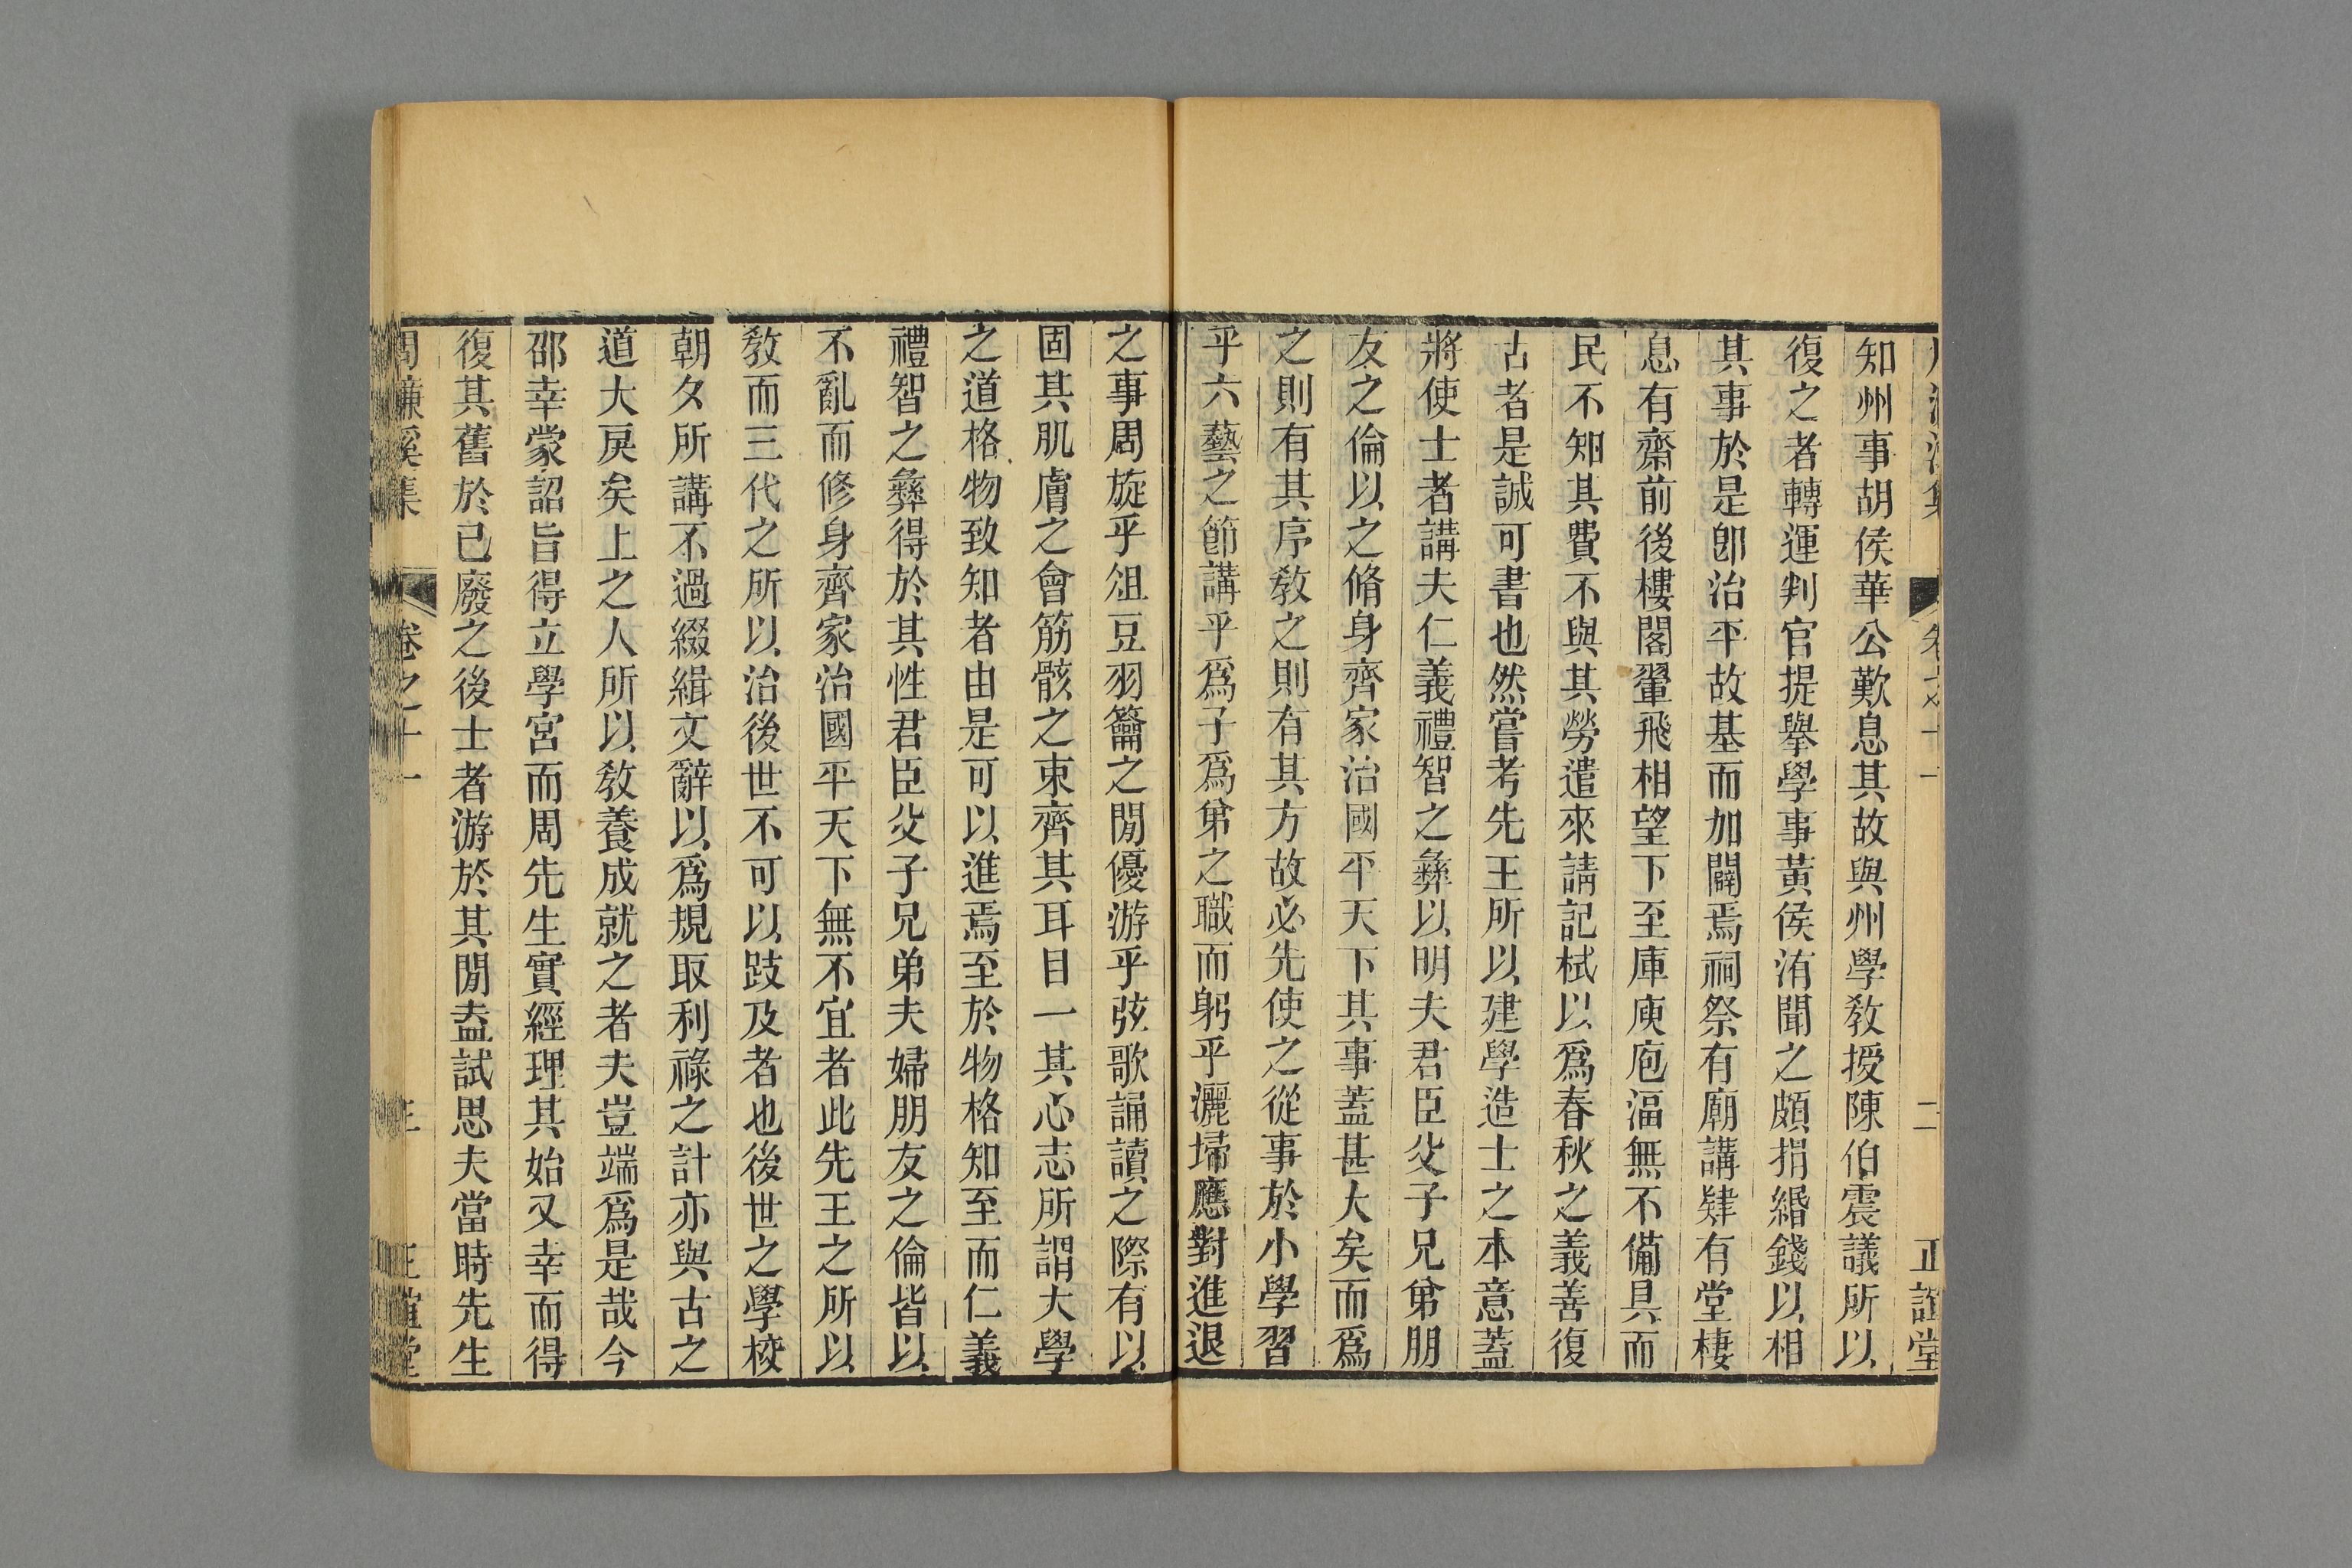 知州事胡侯華公歎息其故與州學敎授陳伯震議所以
復之者轉運判官提舉學事黃侯洧聞之頗捐緡錢以相
其事於是卽治平故基而加闢焉祠祭有廟講肄有堂棲
息有齋前後樓閣翬飛相望下至庫庾庖湢無不備具而
民不知其費不與其勞遣來請記栻以爲春秋之義善復
古者是誠可書也然嘗考先王所以建學造士之本意蓋
將使士者講夫仁義禮智之彝以明夫君臣父子兄弟朋
友之倫以之脩身齊家治國平天下其事蓋甚大矣而爲
之則有其序敎之則有其方故必先使之從事於小學習
乎六藝之節講乎爲子爲弟之職而躬乎灑埽應對進退
之事周旋乎俎豆羽籥之閒優游乎弦歌誦讀之際有以
固其肌膚之會筋骸之束齊其耳目一其心志所謂大學
之道格物致知者由是可以進焉至於物格知至而仁義
禮智之彝得於其性君臣父子兄弟夫婦朋友之倫皆以
不亂而修身齊家治國平天下無不宜者此先王之所以
敎而三代之所以治後世不可以跂及者也後世之學校
朝夕所講不過綴緝文辭以爲規取利祿之計亦與古之
道大戾矣上之人所以敎養成就之者夫豈端爲是哉今
邵幸蒙詔旨得立學宮而周先生實經理其始又幸而得
復其舊於已廢之後士者游於其閒盍試思夫當時先生
周濂溪集 卷之十一 三 正誼堂